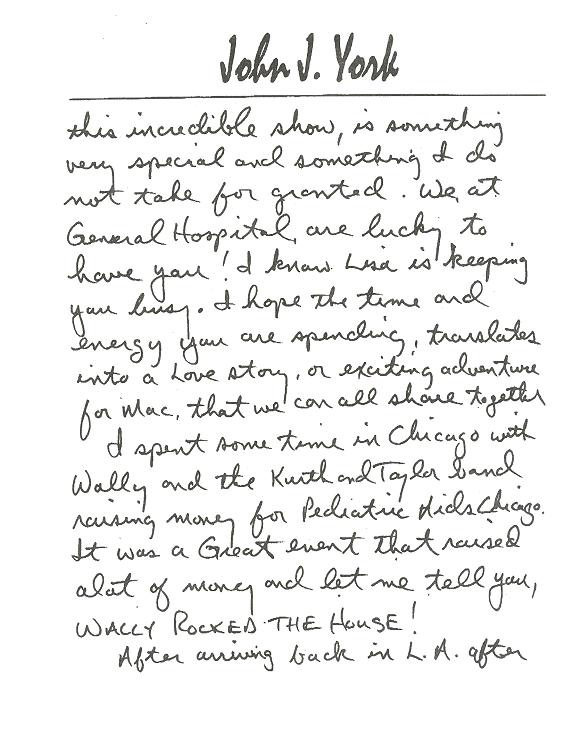 John J. York
this incredible show, is something
very special and something I do
not take for granted. We, at
General Hospital, are lucky to
have you! I know Lisa is keeping
you busy. I hope the time and
energy you are spending, translates
into a Love story, or exciting adventure
for Mac, that we can all share together
I spent some time in Chicago with
Wally and the Kurth and Taylor band
raising money for Pediatric Aids Chicago.
It was a Great event that raised
alot of money and let me tell you,
WALLY ROCKED THE HOUSE!
After arriving back in L.A. after